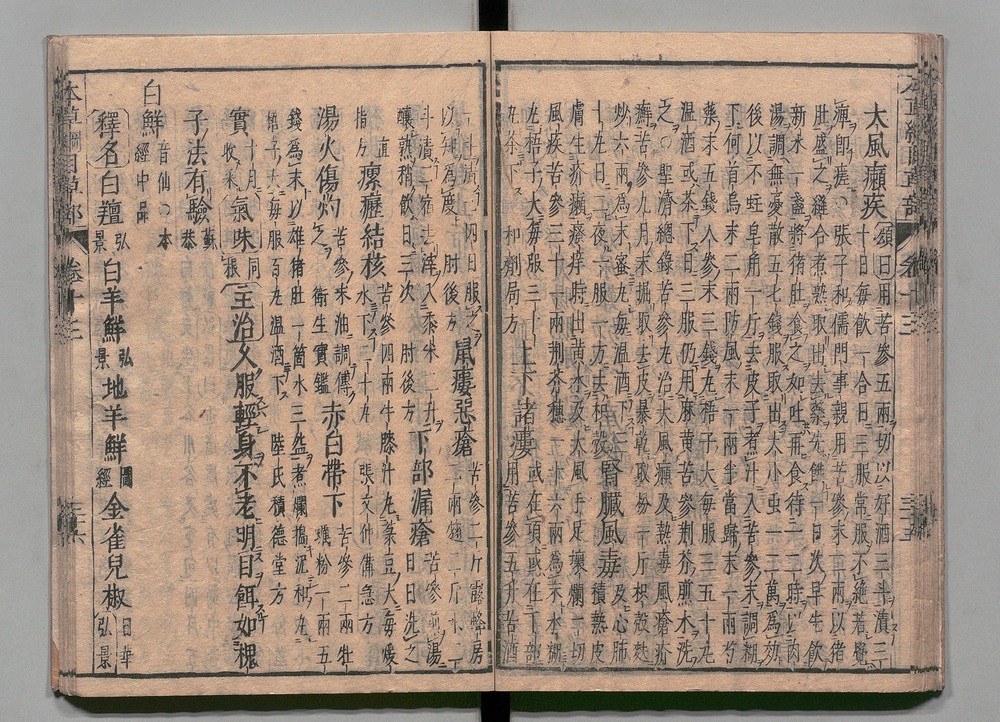 大風癩疾 頌曰用苦參五兩切以好酒三斗漬三
十日每飲一合日三服常服不絶若覺
痺即瘥 張子和儒門事親用苦參末二兩以猪
肚盛之縫合煮熟取出去藥先餓一日次早先飲
新水一盞將猪肚食之如吐再食待一二時以肉
湯調無憂散五七錢服取出大小虫一二萬為効
後以不蛀皂角一斤去皮子煮汁入苦參末調糊
下何首烏末二兩防風末一兩半當歸末一兩芍
藥末五錢人參末三錢丸梧子大每服三五十丸
溫酒或茶下日三服仍用麻黃苦參荆芥煎水洗
之 聖濟總錄苦參丸治大風癩及熱毒風瘡疥
癬苦參九月末掘取去皮暴乾取粉一斤枳殼麩
炒六兩為末蜜丸每溫酒下
十丸日二夜一服一方去枳 腎臟風毒 及心肺積熱皮
膚生疥癩瘙痒時出黃水及大風手足壞爛一切
風疾苦參三十一兩荆芥穗一十六兩為末水糊
丸梧子大每服三十 上下諸瘻 或在項或在下部
丸茶下 和劑局方 用苦參五升苦酒
日服之
以知為度 肘後方 鼠瘻惡瘡 苦參二斤露蜂房
二兩麴二斤水二
斗漬二宿去滓入黍米二升
釀熟稍飲日三次 肘後方 下部漏瘡 苦參煎湯
日日洗之
直指方 瘰癧結核 苦參四兩牛膝汁丸菉豆大每暖
水下二十丸 張文仲備急方
湯火傷灼 苦參末油調傅
之 衛生寶鑑 赤白帶下 苦參二兩牡
蠣粉一兩五
錢為末以雄猪肚一箇水三盌煮爛搗泥和丸
梧子大每服百丸溫酒下 陸氏積德堂方
實 十月
收采 氣味 同
根 主治 久服輕身不老明目餌如槐
子法有驗 蘇
恭
白鮮 音仙
經中品 本
釋名 白羶 弘
景 白羊鮮 弘
景 地羊鮮 圖
經 金雀兒椒 日華
弘景
本草綱目草部 卷十三